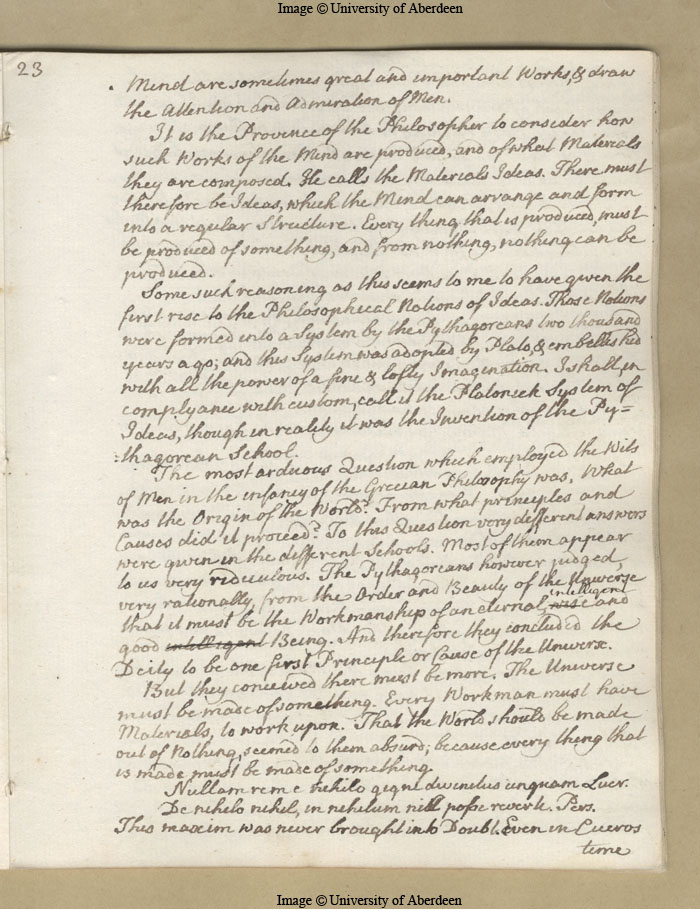 Image © University of Aberdeen
23
Mind are sometimes great and important Works, & draw
the Attention and Admiration of Men.
It is the Province of the Philosopher to consider how
such Works of the Mind are produced, and of what Materials
they are composed. He calls the Materials Ideas. There must
therefore be Ideas, which the Mind can arrange and form
into a regular Structure. Every thing that is produced, must
be produced of something, and from nothing, nothing can be
produced.
Some such reasoning as this seems to me to have given the
first rise to the Philosophical Notions of Ideas. Those Notions
were formed into a System by the Pythagoreans two thousand
years ago; and this System was adopted by Plato, & embellished
with all the power of a fine & lofty Imagination. I shall, in
complyance with custom, call it the Platonick System of
Ideas, though in reality it was the Invention of the Py=
:thagorean School.
The most arduous Question which employed the Wits
of Men in the infancy of the Grecian Philosophy was, What
was the Origin of the World? From what principles and
Causes did it proceed? To this Question very different answers
were given in the different Schools. Most of them appear
to us very ridiculous. The Pythagoreans however judged,
very rationally, from the Order and Beauty of the Universe
that it must be the Workmanship of an eternal, wise intelligent and
good intelligent Being. And therefore they concluded the
Deity to be one first Principle or Cause of the Universe.
But they conceived there must be more. The Universe
must be made of something. Every Workman must have
Materials, to work upon. That the World should be made
out of Nothing, seemed to them absurd; because every thing that
is made must be made of something
Nullam rem e nihilo gigni divinitus unquam Lucr.
De nihilo nihil, in nihilum nill posse reverti. Pers.
This maxim was never brought into Doubt. Even in Ciceros
time
Image © University of Aberdeen